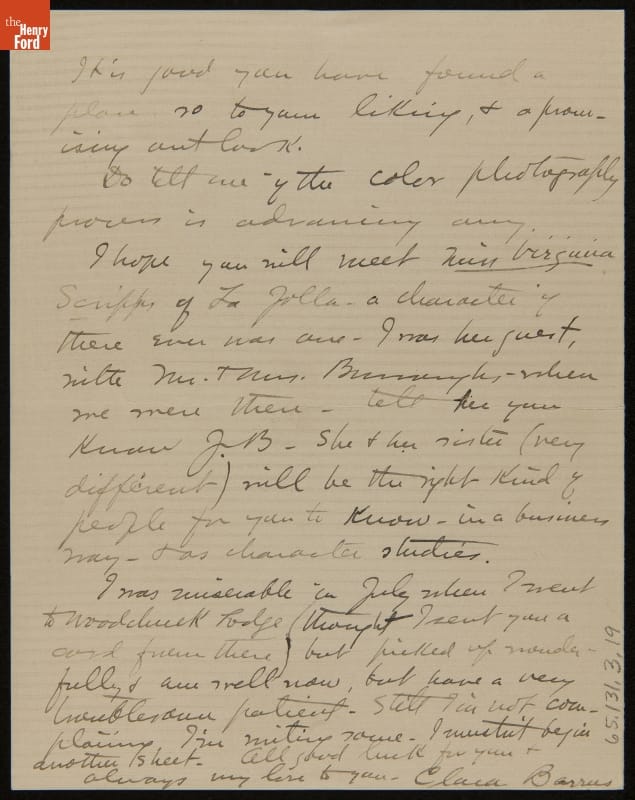 the
Henry
Ford
It's good you have found a
place so to your liking, & a prom-
ising outlook.
Do tell me if the color photography
process is advancing any.
I hope you will meet Miss Virginia
Scripps of La Jolla - a character if
there ever was one - I was her guest,
with Mr. & Mrs. Burroughs - when
we were there - tell her you
know J.B - She & her sister (very
different) will be the right kind of
people for you to know - in a business
way - & as character studies.
I was miserable in July when I went
to Woodchuck Lodge (thought I sent you a
card from there) but picked up wonder-
fully & am well now, but have a very
troublesome patient - Still I'm not com-
plaining I'm writing some - I mustn't begin
another sheet - All good luck for you &
always my love to you - Clara Barrus
65.131.3.19